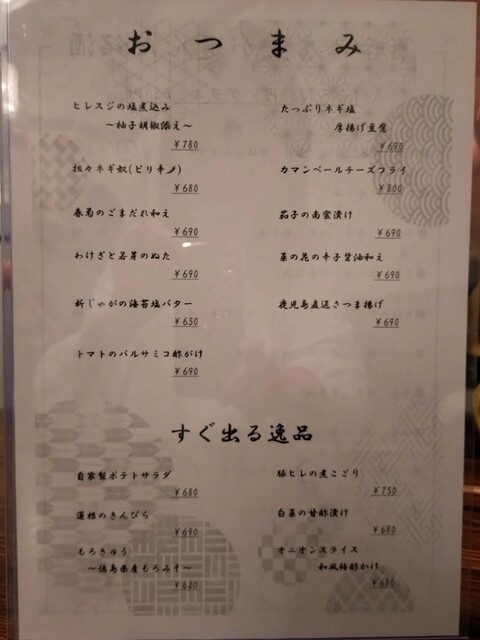 おつまみ
ヒレスジの塩煮込み
～柚子胡椒添え～
¥780
担々ネギ奴(ピリ辛)
¥680
春菊のごまだれ和え
¥690
わけぎと若芽のぬた
¥690
新じゃがの海苔塩バター
¥650
トマトのバルサミコ酢がけ
¥690
たっぷりネギ塩
厚揚げ豆腐
¥690
カマンベールチーズフライ
¥800
茄子の南蛮漬け
¥690
菜の花の辛子醤油和え
¥690
鹿児島直送さつま揚げ
¥690
すぐ出る逸品
自家製ポテトサラダ
¥680
蓮根のきんぴら
¥690
もろきゅう
～徳島県産もろみそ～
¥620
豚ヒレの煮こごり
¥750
白菜の甘酢漬け
¥680
オニオンスライス
和風梅酢かけ
¥680